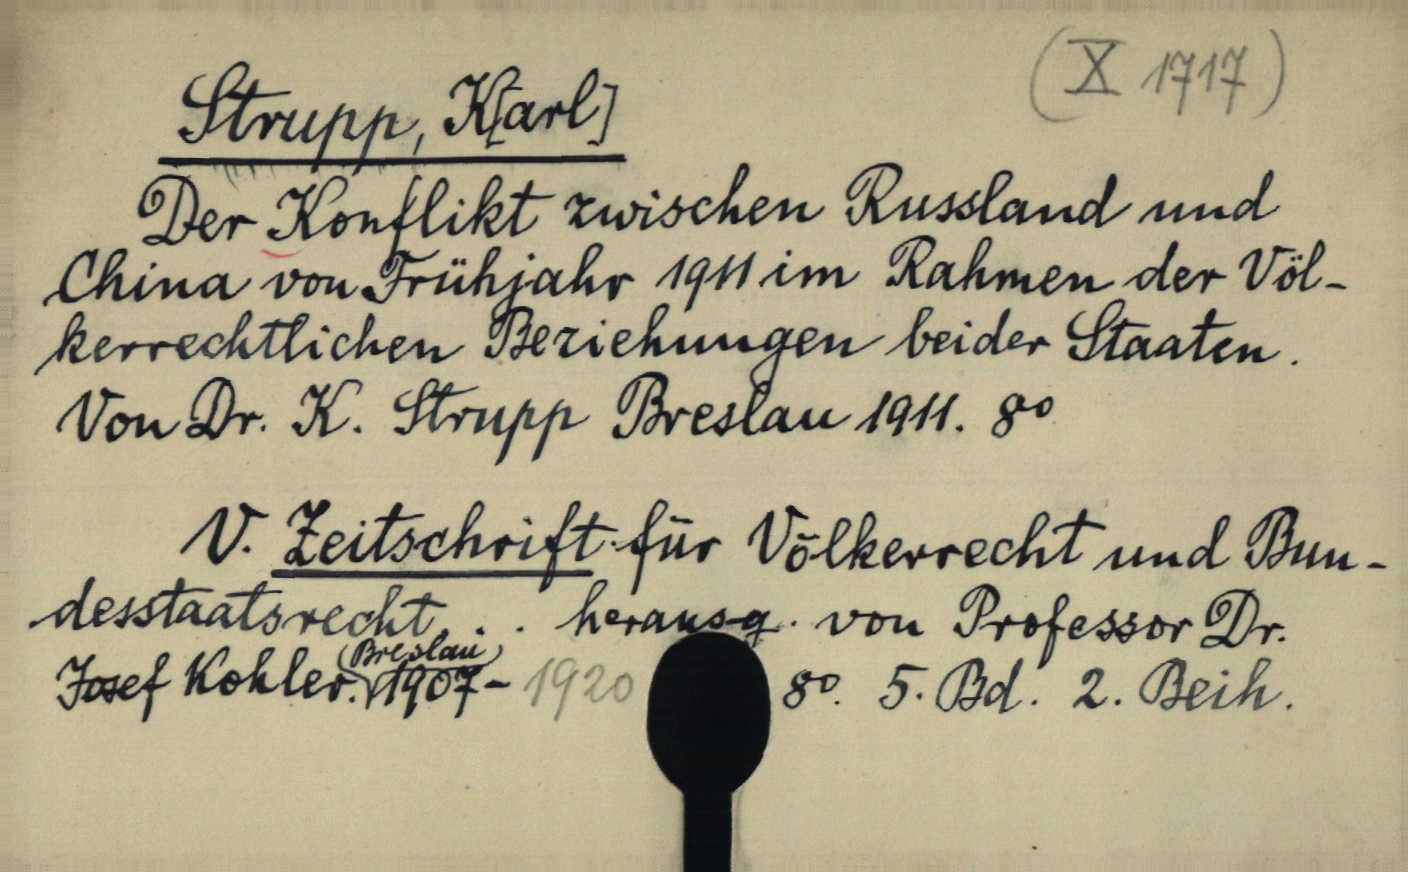 (X 1717)
Strupp, K[arl]
Der Konflikt zwischen Russland und
China von Frühjahr 1911 im Rahmen der Völ-
kerrechtlichen Beziehungen beider Staaten.
Von Dr. K. Strupp Breslau 1911. 8o
V. Zeitschrift für Völkerrecht und Bun-
desstaatsrecht . . herausg. von Professor Dr.
(Breslau)
Josef Kohler. 1907- 1920 8o. 5. Bd. 2. Beih.